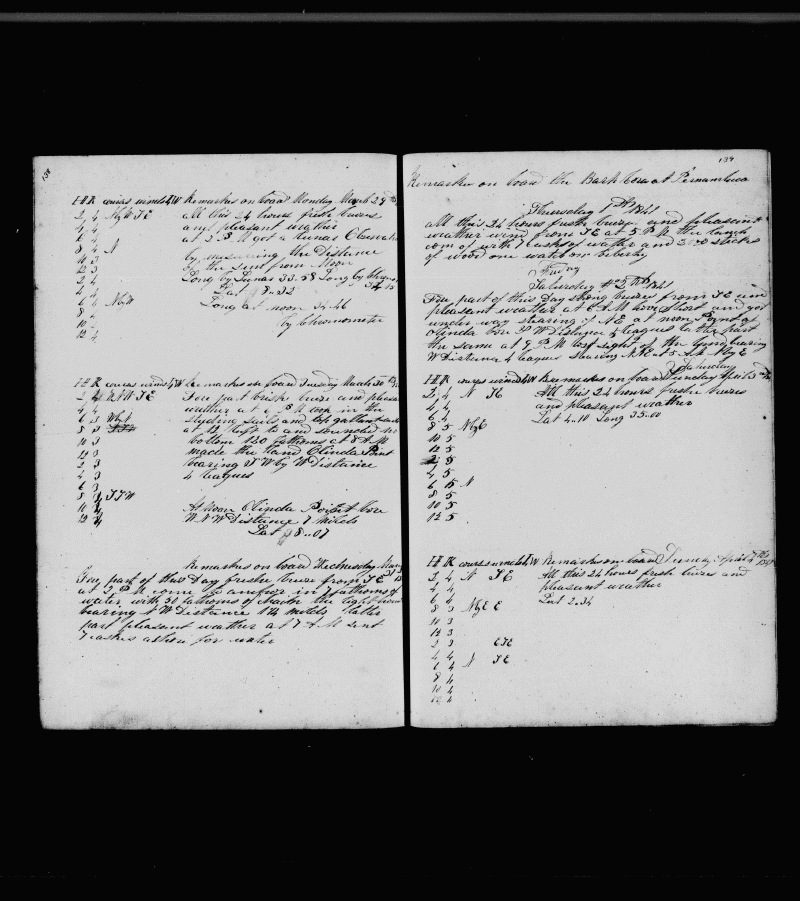 138
H K courses winds LW Remarks on board Monday March 29th
2 4 NbyW SE all this 24 hours fresh breeze
4 4 and pleasant weather
6 4 at 3 P M got a Lunar Observation
8 4 N by measuring the Distance
10 3 of the Sun from Moon
12 3
2 4 Long by Lunar 33.58 Long by Chrono
4 4 Lat 8..32
6 4 NbyW Long at noon 34.46
8 4 by Chronometer
10 4
12 4
H K courses winds LW Remarks on board Tuesday March 30
2 4 NNW SE Fore part brisk breeze and pleasant
4 4 weather at 6 P M took in the
6 3 WbyN studing sails and top gallant sails
8 3 at 12 luft to and sounded no
10 3 bottom 130 fathoms at 8 A M
12 3 made the land Olinda Point
2 3 bearing S W by W Distance
4 3 4 leagues
6 3
8 SSW
10 At Noon Olinda Point bore
12 W N W Distance 7 miles
Lat 8..07
Remarks on board Wednesday
Fore part of this Day freshe breeze from SE
at 2 P M come to anchor in 7 fathoms of
water with 30 fathoms of chain the light house
bearing S W Distance miles latter
part pleasant weather at 7 A M sent
7 casks ashore for water
139
Remarks on board the Bark Cora at Pernambuco
Thursday 1st 1841
all this 24 hours fresh breeze and pleasant
weather wind from SE at 5 P M the launch
com of with 7 casks of water and 2 sticks
of wood one watch on liberty
Friday
Saturday 2nd 1841
Fore part of this Day strong breeze from SE and
pleasant weather at 6 A M hove short and got
under way stearing NE at noon Point of
Olinda bore S W Distance 4 leagues latter part
the same at 9 P M lost sight of the land bearing
W Distance 4 leagues stearing N E at 5 A M NbyE
Saturday
H K courses winds LW Remarks on board Sunday April 3
2 4 N SE All this 24 hours fresh breeze
4 4 and pleasant weather
6 4 Lat 4..10 Long 35..00
8 5 NbyE
10 5
12 5
2 5
4 5
6 5 N
8 5
10 5
12 5
H K courses winds LW Remarks on board Sunday April 4th
2 4 N SE All this 24 hours fresh breeze and
4 4 pleasant weather
6 4 Lat 2..34
8 3 NbyE E
10 3
12 3
2 3 ESE
4 4
6 4 N SE
8 4
10 4
12 4